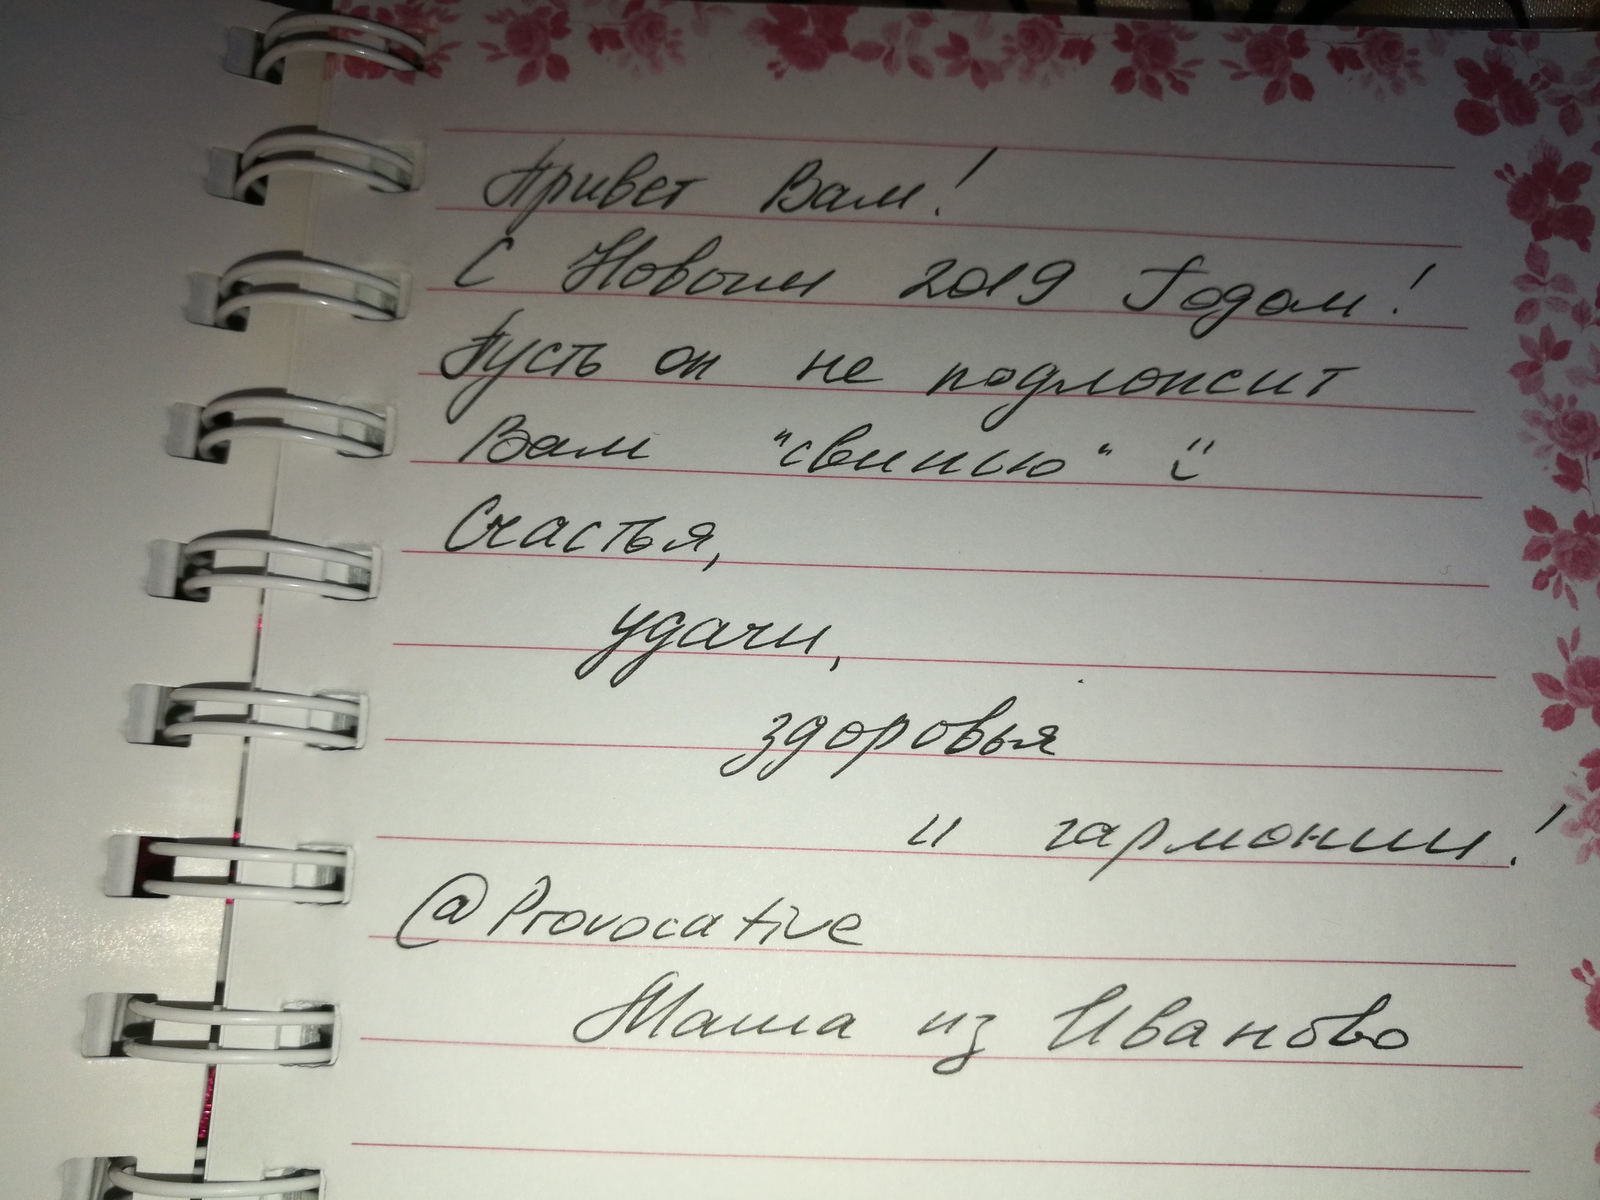 Привет Вам!
С Новым 2019 Годом!
Пусть он не подложит
Вам "свинью" :̈
Счастья,
удачи,
здоровья
и гармонии!
@Provocative
Маша из Иваново